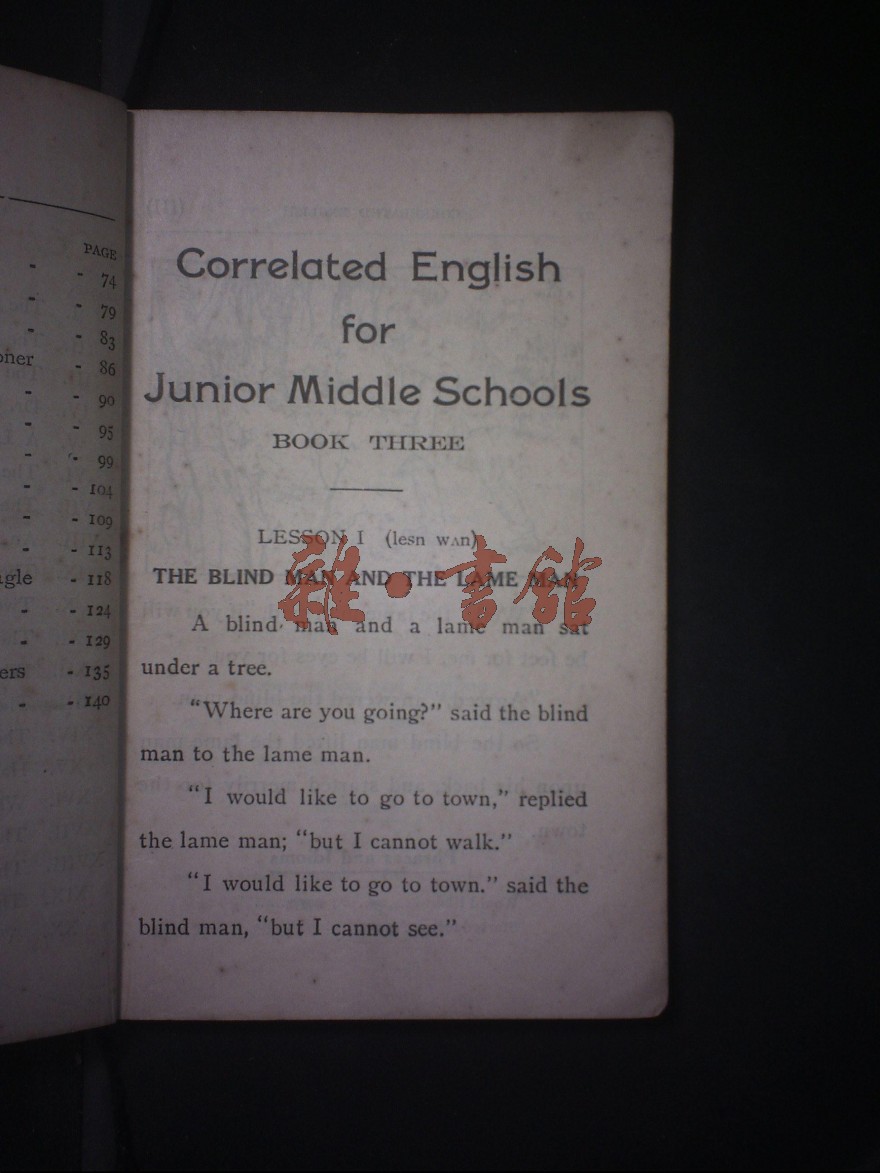 PAGE
- - 74
- - 79
- - 83
- 86
- - 90
- - 95
- - 99
- - 104
- - 109
- - 113
- 118
- - 124
- - 129
- 135
- - 140
Correlated English
for
Junior Middle Schools
BOOK THREE
LESSON I (lesn wʌn)
THE BLIND MAN AND THE LAME MAN
雜·書館
A blind man and a lame man sat
under a tree.
"Where are you going?" said the blind
man to the lame man.
"I would like to go to town," replied
the lame man; "but I cannot walk."
"I would like to go to town." said the
blind man, "but I cannot see."